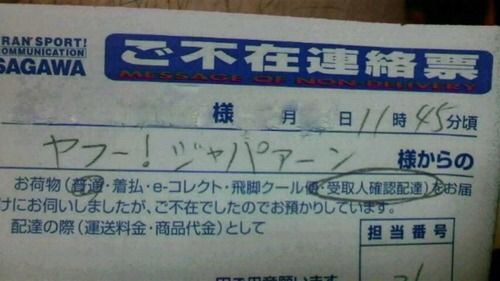 TRANSPORT!
COMMUNICATION
SAGAWA
ご不在連絡票
MESSAGE OF NON-DELIVERY
様 月 日 11時 45分頃
ヤフー！ジャパァーン 様からの
お荷物(普通・着払・e-コレクト・飛脚クール便・受取人確認配達)をお届
けにお伺いしましたが、ご不在でしたのでお預かりしています。
配達の際(運送料金・商品代金)として
担当番号